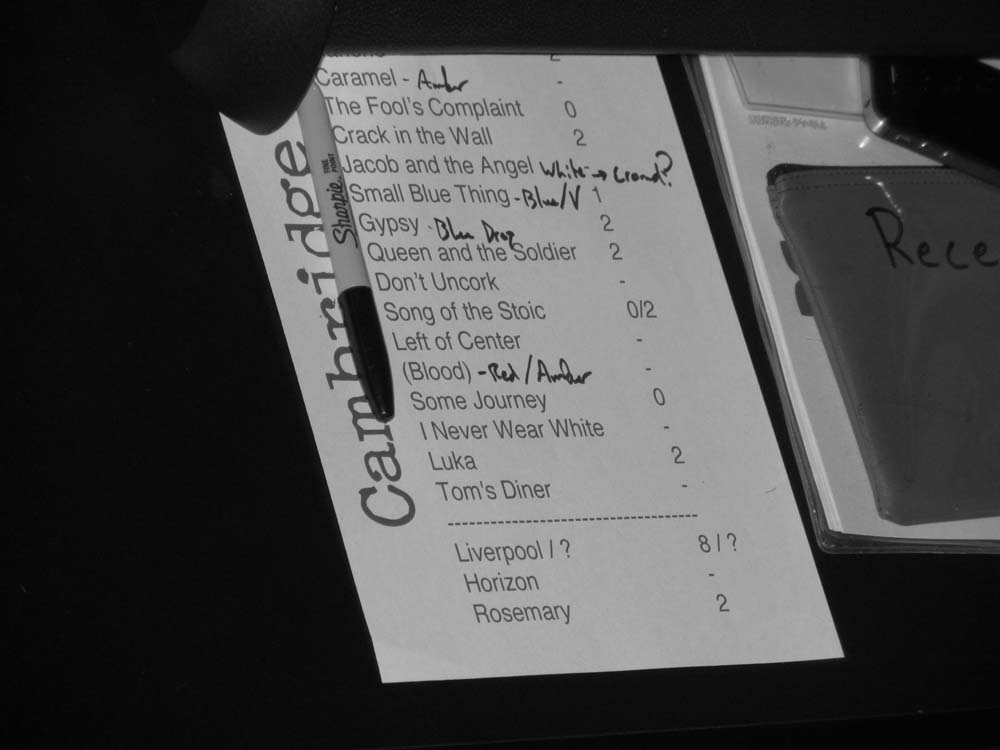 2
Caramel - Amber -
The Fool's Complaint 0
Crack in the Wall 2
Jacob and the Angel White → Crowd?
Small Blue Thing - Blue/V 1
Gypsy - Blue Drop 2
Queen and the Soldier 2
Don't Uncork -
Song of the Stoic 0/2
Left of Center -
(Blood) - Red / Amber -
Some Journey 0
I Never Wear White -
Luka 2
Tom's Diner -
Liverpool / ? 8 / ?
Horizon -
Rosemary 2
Cambridge
Sharpie. THE POINT
Rece